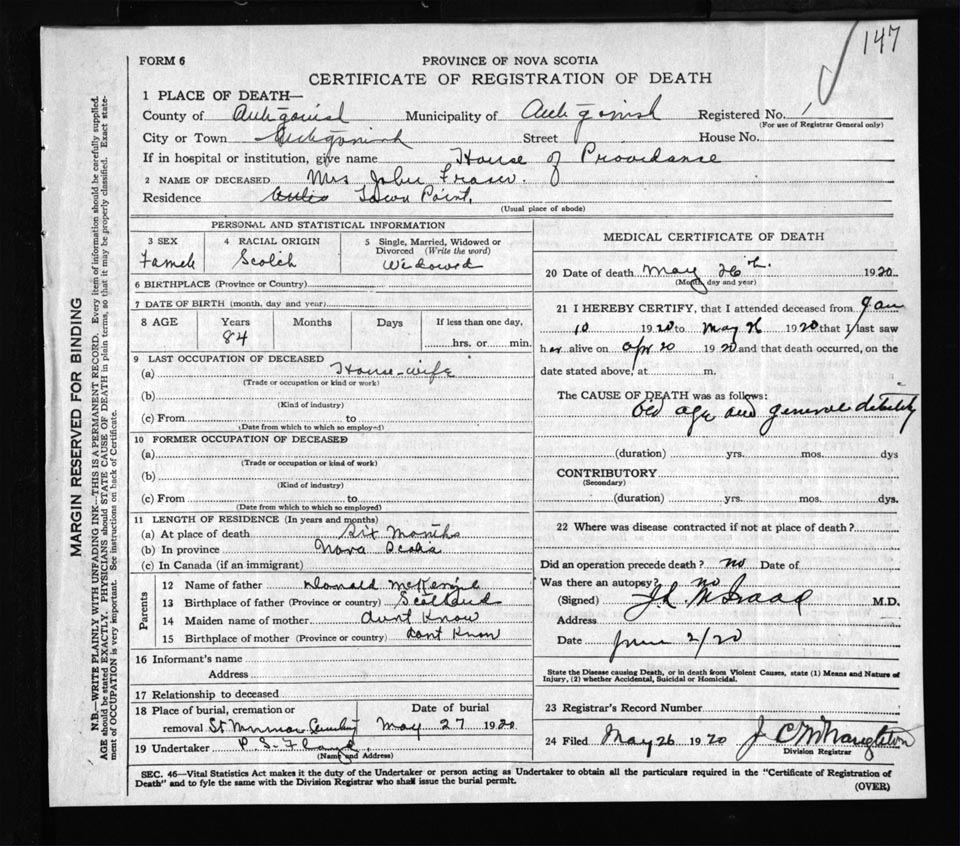 147
FORM 6
PROVINCE OF NOVA SCOTIA
CERTIFICATE OF REGISTRATION OF DEATH
1 PLACE OF DEATH—
County of Antigonish Municipality of Antigonish Registered No. 1
(For use of Registrar General only)
City or Town Antigonish Street House No.
If in hospital or institution, give name House of Providence
2 NAME OF DECEASED Mrs John Fraser.
Residence Town Point.
(Usual place of abode)
PERSONAL AND STATISTICAL INFORMATION
3 SEX 4 RACIAL ORIGIN 5 Single, Married, Widowed or
Divorced (Write the word)
Famele Scotch Widowed
6 BIRTHPLACE (Province or Country)
7 DATE OF BIRTH (month, day and year)
8 AGE Years Months Days If less than one day,
84
hrs. or min.
9 LAST OCCUPATION OF DECEASED
(a) House-wife
(Trade or occupation or kind or work)
(b)
(Kind of industry)
(c) From to
(Date from which to which so employed)
10 FORMER OCCUPATION OF DECEASED
(a)
(Trade or occupation or kind of work)
(b)
(Kind of industry)
(c) From to
(Date from which to which so employed)
11 LENGTH OF RESIDENCE (In years and months)
(a) At place of death Six Months
(b) In province Nova Scotia
(c) In Canada (if an immigrant)
Parents
12 Name of father Donald McKenzie
13 Birthplace of father (Province or country) Scotland
14 Maiden name of mother dont Know
15 Birthplace of mother (Province or country) dont Know
16 Informant's name
Address
17 Relationship to deceased
18 Place of burial, cremation or Date of burial
removal St May 27 1920
19 Undertaker P. S. Floyd
(Name and Address)
MEDICAL CERTIFICATE OF DEATH
20 Date of death May 26th 1920
(Month, day and year)
21 I HEREBY CERTIFY, that I attended deceased from Jan
10 1920 to May 26 1920 that I last saw
her alive on Apr 20 1920 and that death occurred, on the
date stated above, at m.
The CAUSE OF DEATH was as follows:
old age and general debility
(duration) yrs. mos. dys
CONTRIBUTORY
(Secondary)
(duration) yrs. mos. dys.
22 Where was disease contracted if not at place of death?
Did an operation precede death? no Date of
Was there an autopsy? no
(Signed) M.D.
Address
Date June 2/20
State the Disease causing Death, or in death from Violent Causes, state (1) Means and Nature of
Injury, (2) whether Accidental, Suicidal or Homicidal.
23 Registrar's Record Number
24 Filed May 26 1920 J C McNaughton
Division Registrar
SEC. 46—Vital Statistics Act makes it the duty of the Undertaker or person acting as Undertaker to obtain all the particulars required in the "Certificate of Registration of
Death" and to fyle the same with the Division Registrar who shall issue the burial permit.
(OVER)
MARGIN RESERVED FOR BINDING
N.B.—WRITE PLAINLY WITH UNFADING INK—THIS IS A PERMANENT RECORD. Every item of information should be carefully supplied.
AGE should be stated EXACTLY. PHYSICIANS should STATE CAUSE OF DEATH in plain terms, so that it may be properly classified. Exact state-
ment of OCCUPATION is very important. See instructions on back of Certificate.